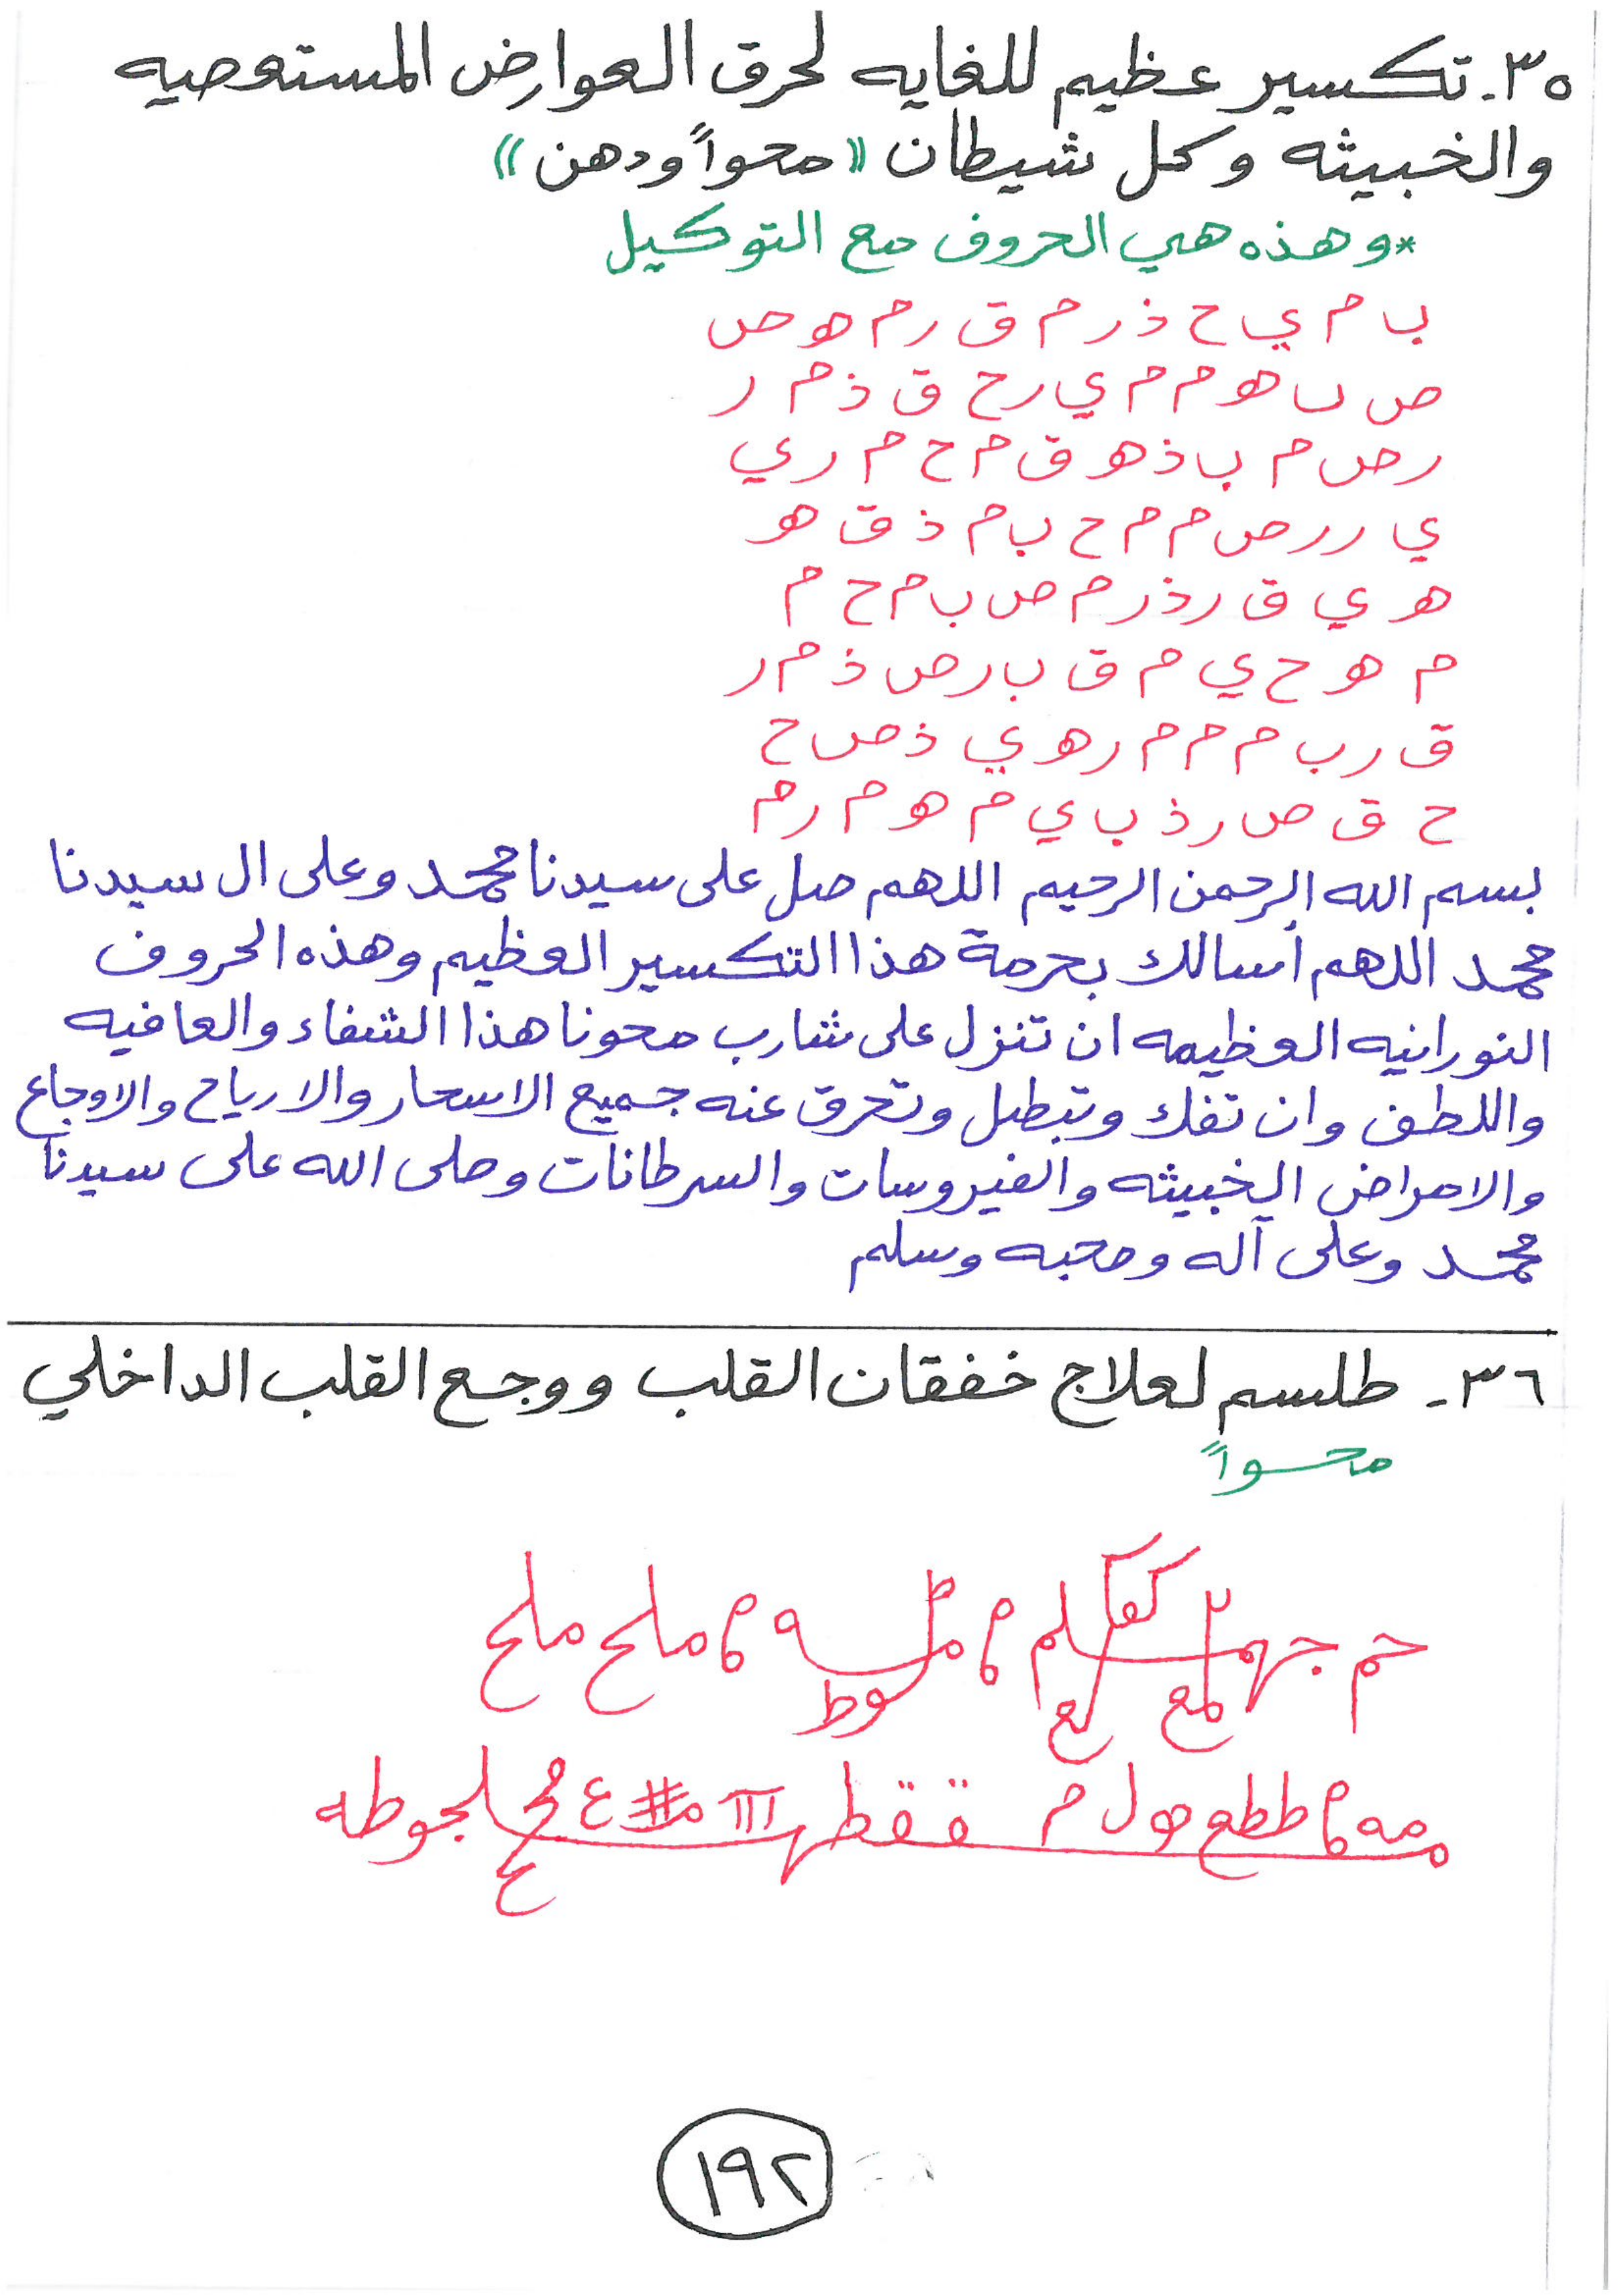 ٣٥. تكسير عظيم للغايه لحرق العوارض المستعصيه
والخبيثه وكل شيطان «محواً ودهن»
*وهذه هي الحروف مع التوكيل
ب م ي ح ذ ر م ق ر م هو ص
ص ب هو م م ي ر ح ق ذ م ر
ر ص م ب ذ هو ق م ح م ر ي
ي ر ر ص م م ح ب م ذ ق هو
هو ي ق ر ذ ر م ص ب م ح م
م هو ح ي م ق ب ر ص ذ م ر
ق ر ب م م م ر هو ي ذ ص ح
ح ق ص ر ذ ب ي م هو م ر م
بسم الله الرحمن الرحيم اللهم صل على سيدنا محمد وعلى ال سيدنا
محمد اللهم أسالك بحرمة هذا التكسير العظيم وهذه الحروف
النورانيه العظيمه ان تنزل على شارب محونا هذا الشفاء والعافيه
واللطف وان تفك وتبطل وتحرق عنه جميع الاسحار والارياح والاوجاع
والامراض الخبيثه والفيروسات والسرطانات وصلى الله على سيدنا
محمد وعلى آله وصحبه وسلم
٣٦- طلسم لعلاج خفقان القلب ووجع القلب الداخلي
محواً
ملح ملح
١٩٢